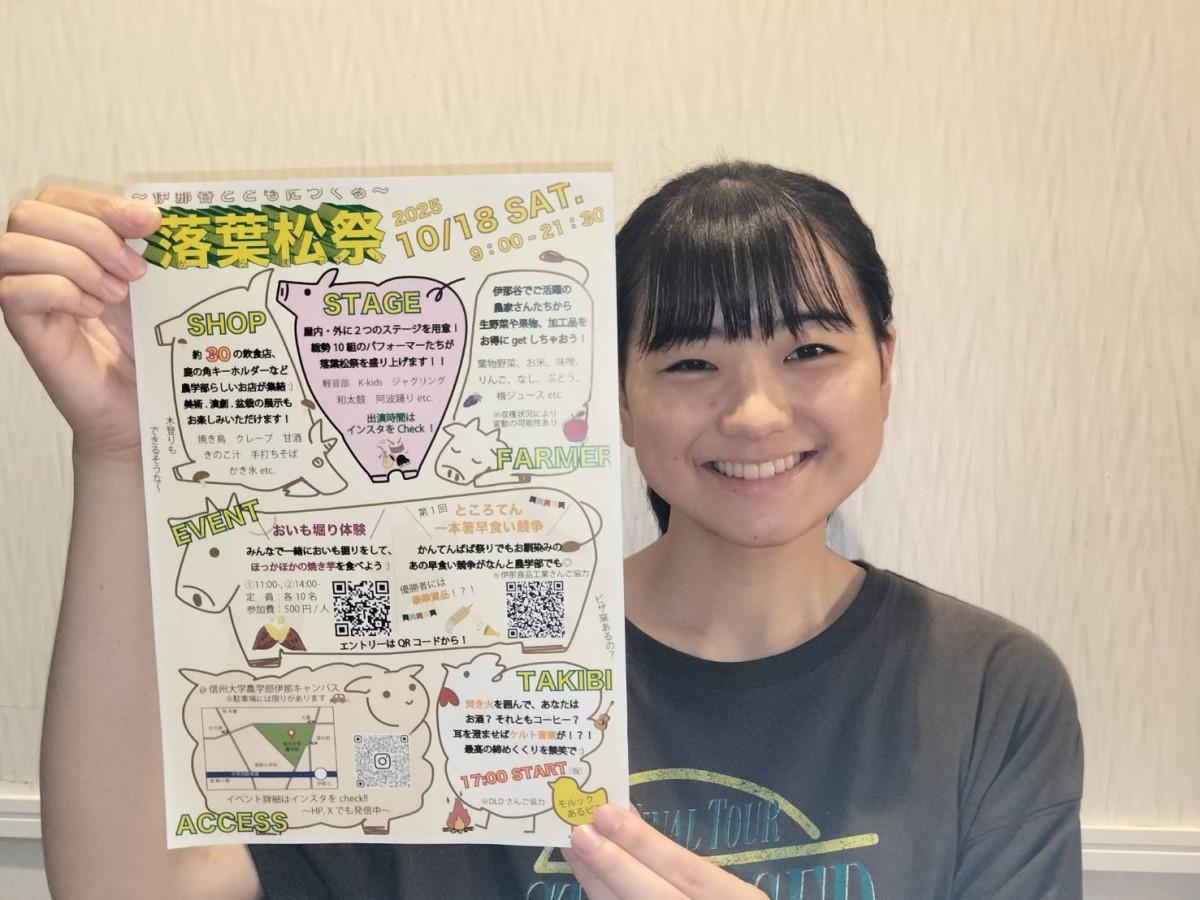 ～伊那谷とともにつくる～
落葉松祭
2025
10/18 SAT.
9：00-21：30
SHOP
約30の飲食店、
鹿の角キーホルダーなど
農学部らしいお店が集結:)
美術．演劇．盆栽の展示も
お楽しみいただけます！
焼き鳥 クレープ 甘酒
きのこ汁 手打ちそば
かき氷 etc.
木登りも
できるそうな～
STAGE
屋内・外に２つのステージを用意！
総勢10組のパフォーマーたちが
落葉松祭を盛り上げます！！
軽音部 K-kids ジャグリング
和太鼓 阿波踊り etc.
出演時間は
インスタを Check！
伊那谷でご活躍の
農家さんたちから
生野菜や果物、加工品を
お得に get しちゃおう！
葉物野菜、お米、味噌、
りんご、なし、ぶどう、
梅ジュース etc.
※収穫状況により
変動の可能性あり
FARMER
EVENT
おいも堀り体験
みんなで一緒においも掘りをして、
ほっかほかの焼き芋を食べよう:)
①11:00-, ②14:00-
定 員：各10名
参加費：500円/人
第1回 ところてん
一本箸早食い競争
かんてんぱぱ祭りでもお馴染みの
あの早食い競争がなんと農学部でも◎
※伊那食品工業さんご協力
優勝者には
豪華賞品！？！
エントリーはQRコードから！
ピザ窯あるの？
@ 信州大学農学部伊那キャンパス
※駐車場には限りがあります
イベント詳細はインスタを check!!
～HP, X でも発信中～
ACCESS
TAKIBI
焚き火を囲んで、あなたは
お酒？ それともコーヒー？
耳を澄ませばケルト音楽が！？！
最高の締めくくりを談笑で:)
17:00 START
※DLD さんご協力
モルック
あるピ
NAL TOUR